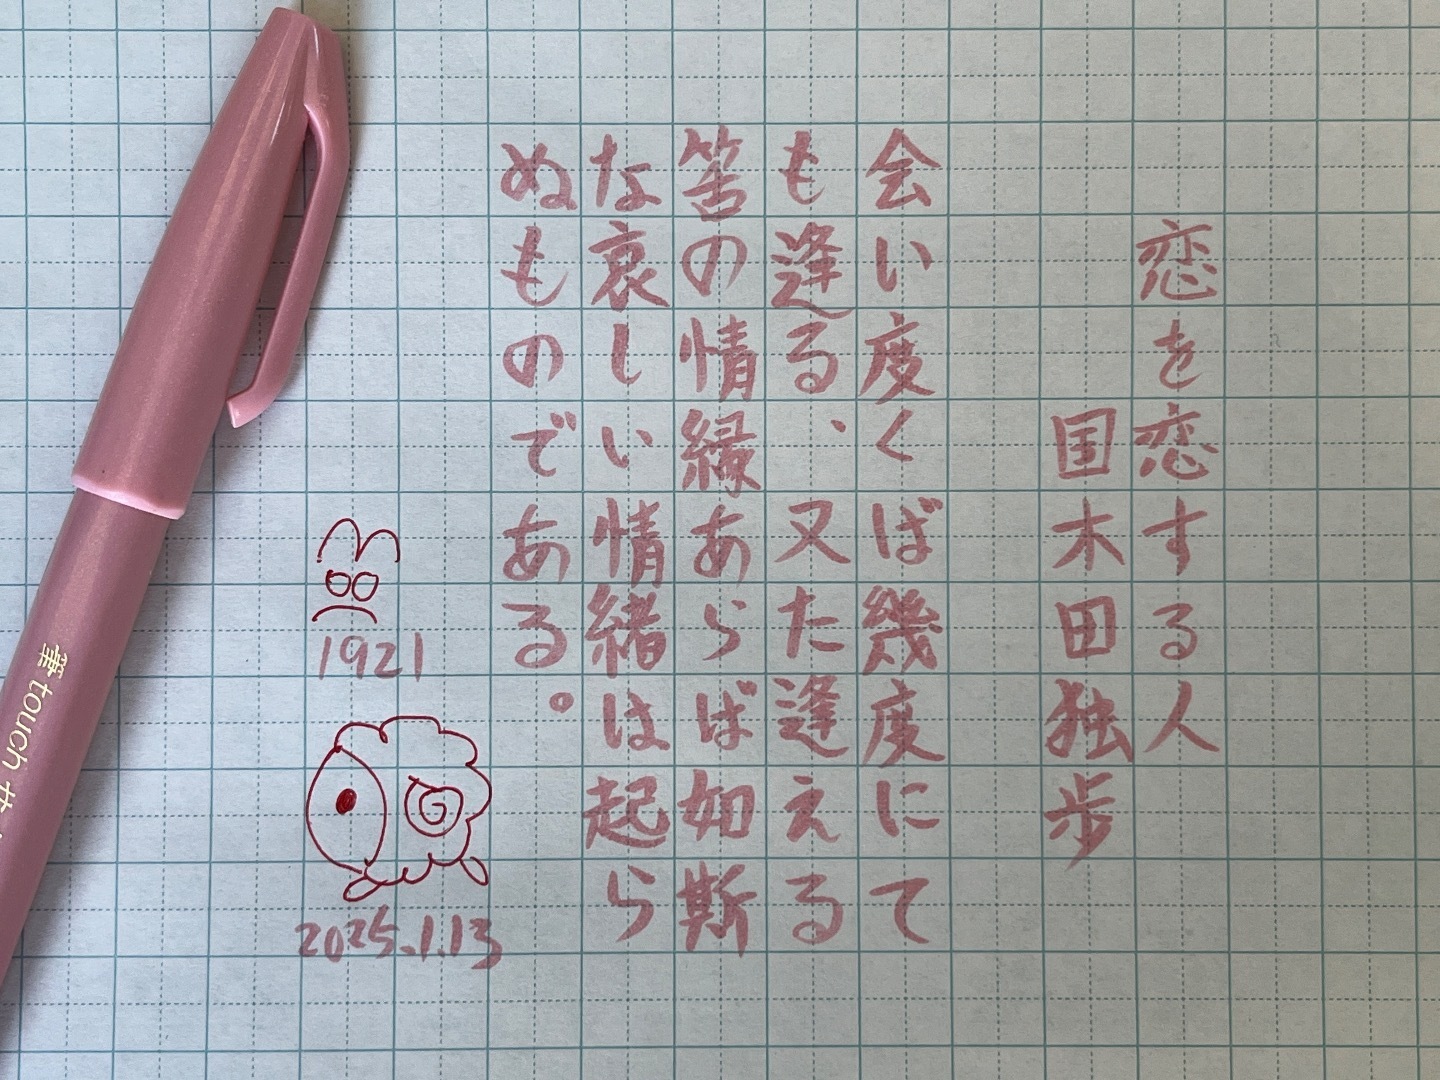 恋を恋する人
国木田独歩
会い度くば幾度にて
も逢る、又た逢える
筈の情縁あらば如斯
な哀しい情緒は起ら
ぬものである。
1921
2025.1.13
筆touch サ